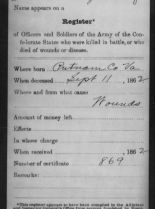 Name appears on a
Register*
of Officers and Soldiers of the Army of the Con-
federate States who were killed in battle, or who
died of wounds or disease.
Where born Putnam Co Va
When deceased Sept 11, 1862
Where and from what cause
Wounds
Amount of money left
Effects
In whose charge
When received , 1862
Number of certificate 869
Remarks:
*This register appears to have been compiled in the Adjutant